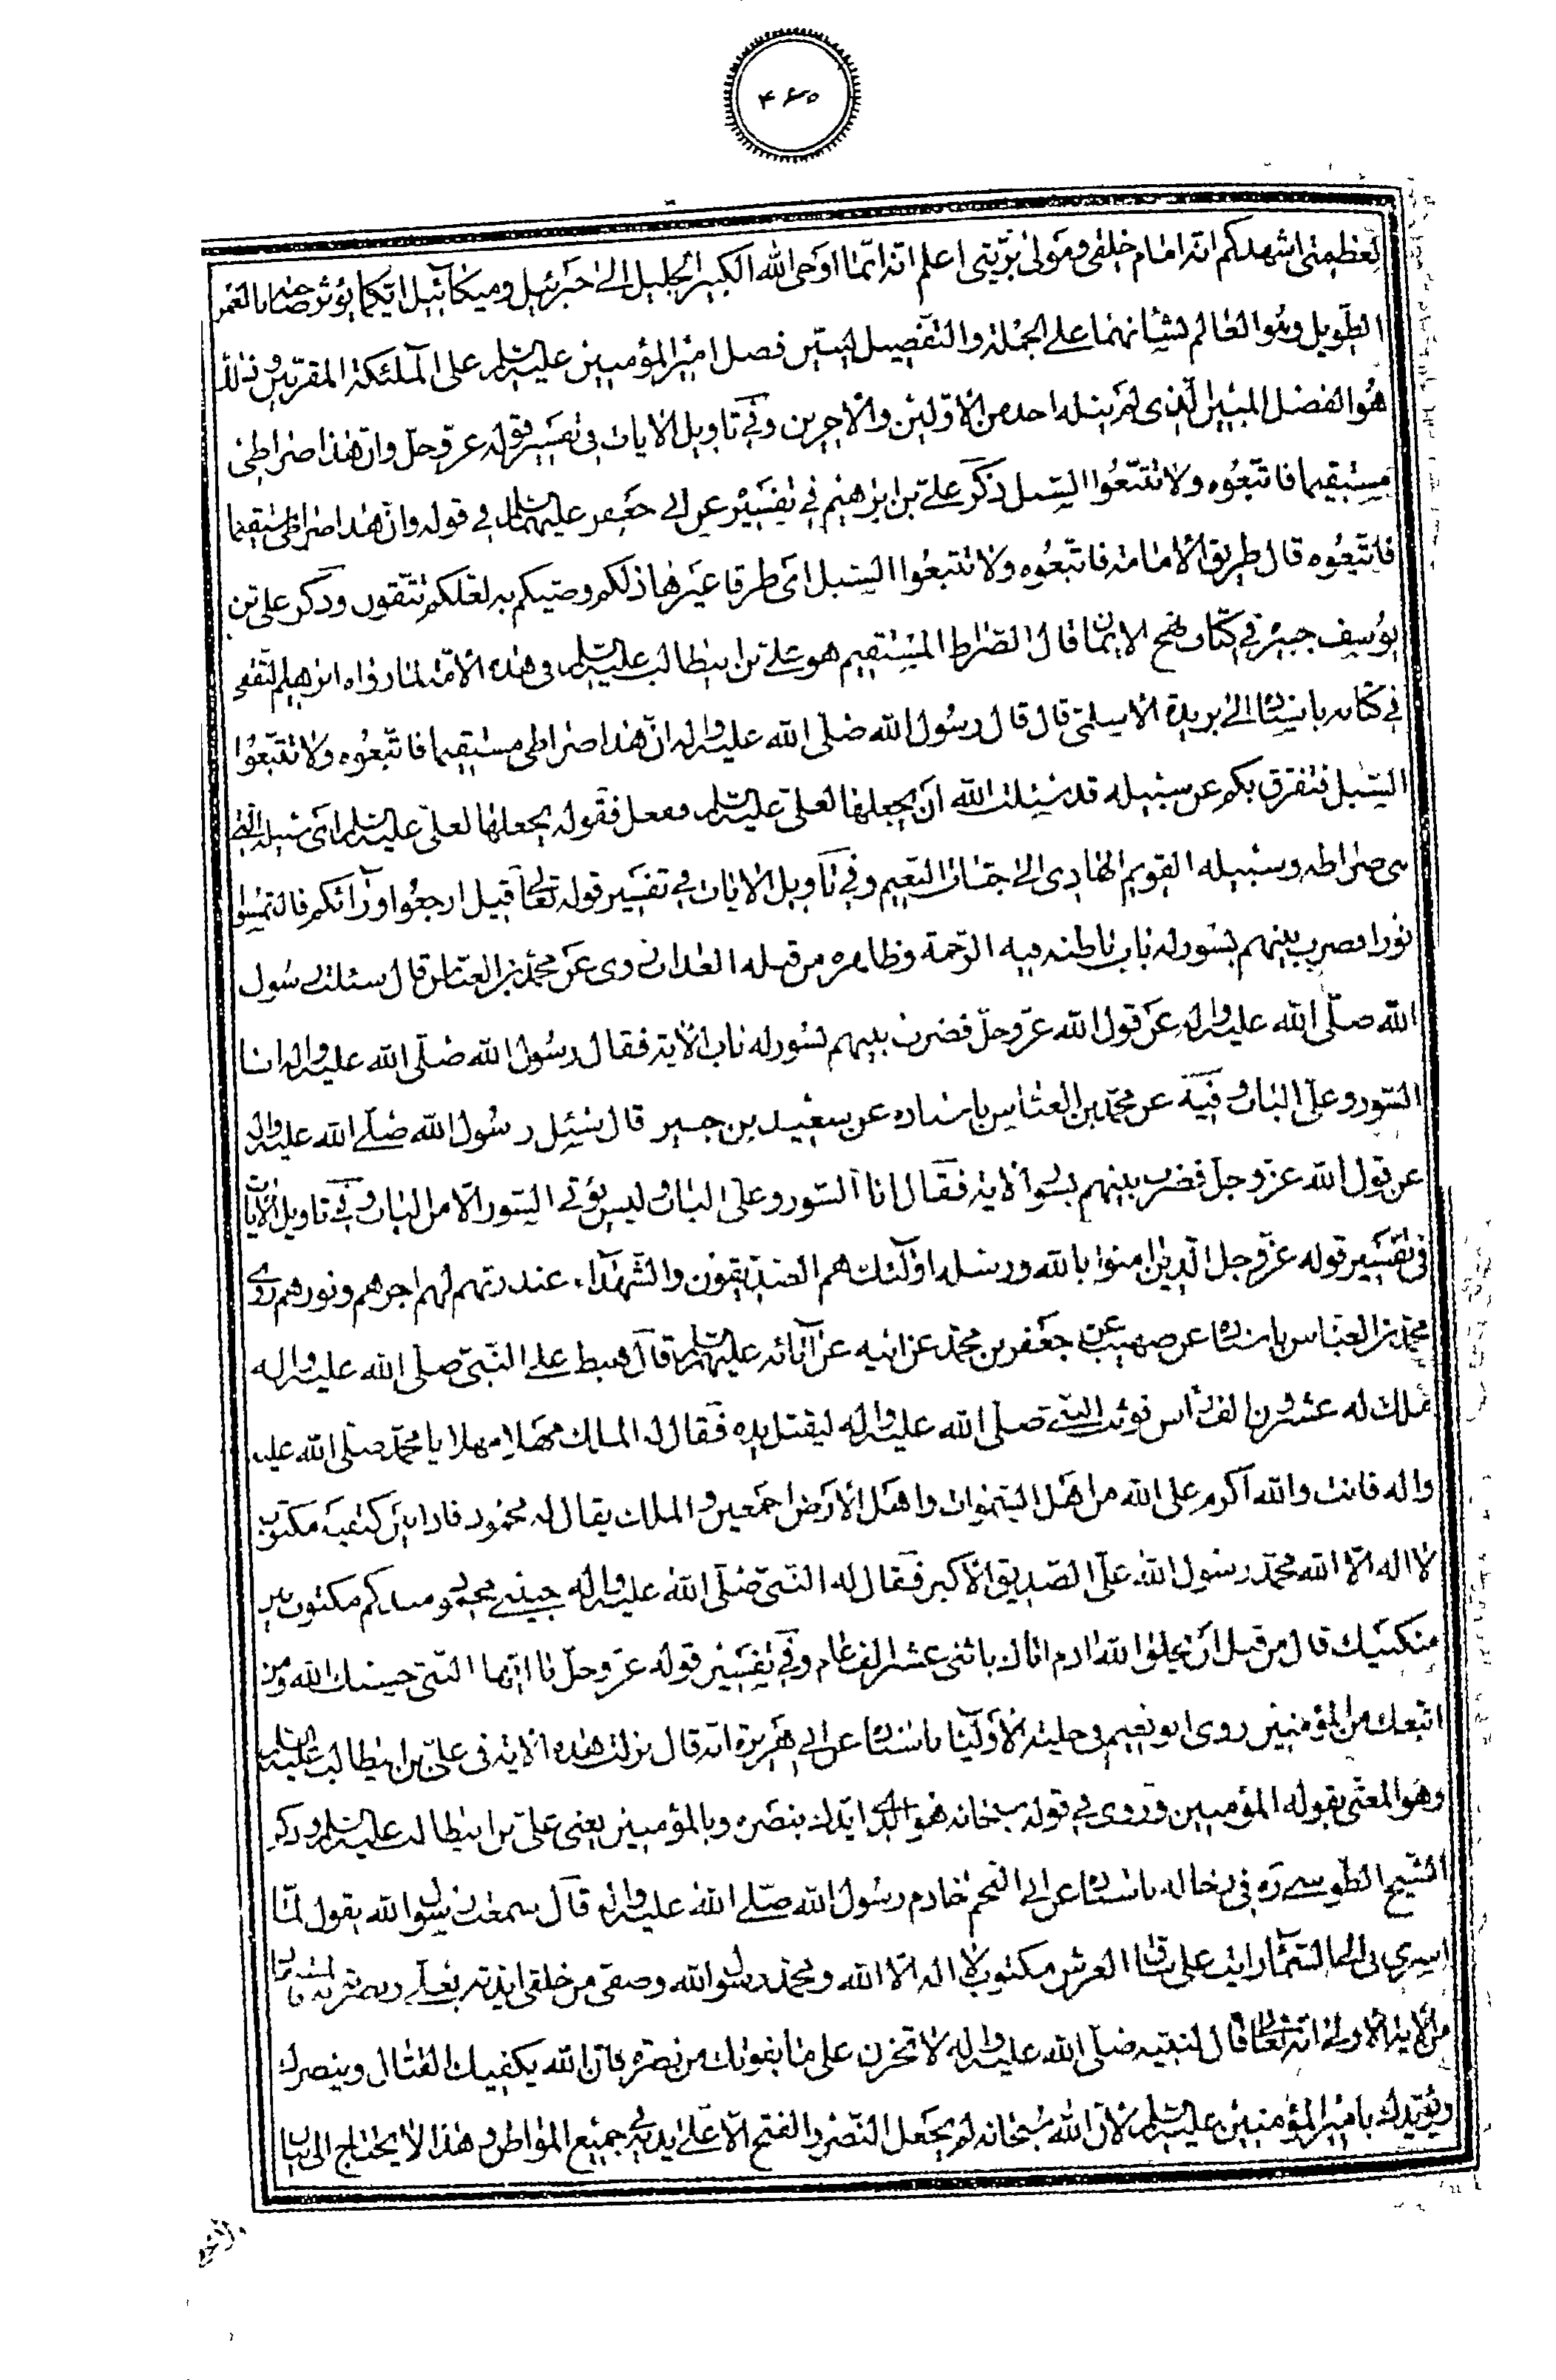 ۴۶۵
لعظمتي اشهدكم انه امام خلقي ومولى بريتي اعلم انه انما اوحى الله الكبير الجليل الى جبرئيل وميكائيل ايكما يؤثر صاحبه بالعمر
الطويل وهو العالم لشانهما على الجملة والتفصيل ليبين فضل امير المؤمنين عليه السلم على الملئكة المقربين وذلك
هو الفضل المبين الذى لم ينله احد من الاولين والاخرين وفي تاويل الايات في تفسير قوله عز وجل وان هذا صراطي
مستقيما فاتبعوه ولا تتبعوا السبل ذكر علي بن ابرهيم في تفسيره عن ابي جعفر عليه السلام في قوله وان هذا صراطي مستقيما
فاتبعوه قال طريق الامامة فاتبعوه ولا تتبعوا السبل اى طرقا غيرها ذلكم وصيكم به لعلكم تتقون وذكر علي بن
يوسف جبير في كتاب نهج الايمان قال الصراط المستقيم هو علي بن ابيطالب عليه السلم في هذه الامة لما رواه ابرهيم الثقفي
في كتابه باسناده الى بريدة الاسلمي قال قال رسول الله صلى الله عليه واله ان هذا صراطي مستقيما فاتبعوه ولا تتبعوا
السبل فتفرق بكم عن سبيله قد سئلت الله ان يجعلها لعلي عليه السلم ففعل فقوله يجعلها لعلي عليه السلم اى سبيله التي
هى صراطه وسبيله القويم الهادى الى جنات النعيم وفي تاويل الايات في تفسير قوله تعالى قيل ارجعوا ورائكم فالتمسوا
نورا فضرب بينهم بسور له باب باطنه فيه الرحمة وظاهره من قبله العذاب روى عن محمد بن العباس قال سئلت رسول
الله صلى الله عليه واله عن قول الله عز وجل فضرب بينهم بسور له باب الاية فقال رسول الله صلى الله عليه واله انا
السور وعلي الباب وفيه عن محمد بن العباس باسناده عن سعيد بن جبير قال سئل رسول الله صلى الله عليه واله
عن قول الله عز وجل فضرب بينهم بسور الاية فقال انا السور وعلي الباب وليس يؤتى السور الا من الباب وفي تاويل الايات
في تفسير قوله عز وجل الذين امنوا بالله ورسله اولئك هم الصديقون والشهداء عند ربهم لهم اجرهم ونورهم روى
محمد بن العباس باسناده عن صهيب عن جعفر بن محمد عن ابيه عن آبائه عليهم السلم قال هبط على النبي صلى الله عليه واله
ملك له عشرون الف راس فوثب النبي صلى الله عليه واله ليقبل يده فقال له الملك مهلا مهلا يا محمد صلى الله عليه
واله فانت والله اكرم على الله من اهل السموات واهل الارض اجمعين والملك يقال له محمود فاذا بين كتفيه مكتوب
لا اله الا الله محمد رسول الله علي الصديق الاكبر فقال له النبي صلى الله عليه واله حبيبي محمود منذ كم مكتوب بين
منكبيك قال من قبل ان يخلق الله ادم اباك باثني عشر الف عام وفي تفسير قوله عز وجل يا ايها النبي حسبك الله ومن
اتبعك من المؤمنين روى ابو نعيم في حلية الاولياء باسناده عن ابي هريرة انه قال نزلت هذه الاية في علي بن ابيطالب عليه السلم
وهو المعني بقوله المؤمنين وروى في قوله سبحانه هو الذي ايدك بنصره وبالمؤمنين يعني علي بن ابيطالب عليه السلم وذكر
الشيخ الطوسي ره في رجاله باسناده عن ابي الحمراء خادم رسول الله صلى الله عليه واله قال سمعت رسول الله يقول لما
اسري بي الى السماء رايت على ساق العرش مكتوبا لا اله الا الله ومحمد رسول الله وصفيي من خلقي ايدته بعلي ونصرته به
من الاية الاولى انه تعالى قال لنبيه صلى الله عليه واله لا تحزن على ما يفوتك من نصره فان الله يكفيك القتال وينصرك
ويؤيدك بامير المؤمنين عليه السلم لان الله سبحانه لم يجعل النصر والفتح الا على يديه في جميع المواطن وهذا لا يحتاج الى بيان